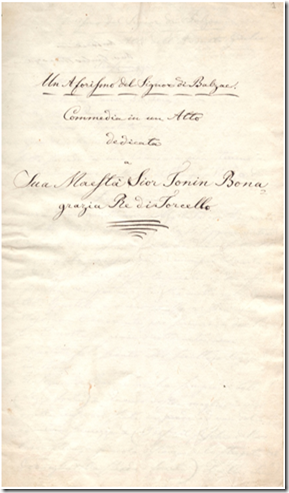 Un Aforismo del Signor di Balzac.
Commedia in un Atto
dedicata
a
Sua Maestà Sior Tonin Bona-
grazia Re di Torcello